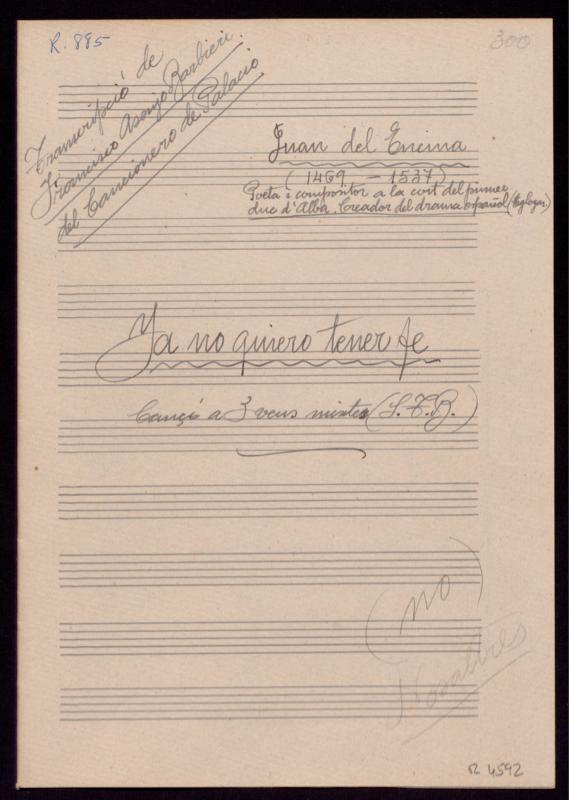 R. 895
300
Transcripció de
Francisco Asenjo Barbieri.
del Cancionero de Palacio
Juan del Encina
(1469 - 1537)
Poeta i compositor a la cort del primer
duc d'Alba. Creador del drama español (Eglogas)
Ya no quiero tener fe
Cançó a 3 veus mixtes (S. T. B.)
(no)
Nosaltres
R 4592